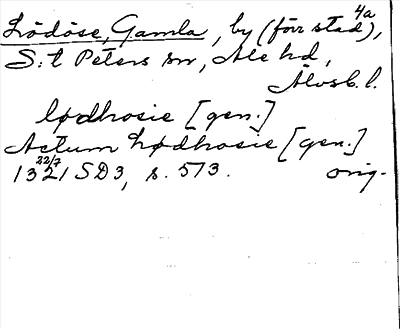 4a
Lödöse, Gamla, by (förr stad),
S:t Peters sn, Ale hd,
Älvsb. l.
lødhosie [gen.]
Actum lødhosie [gen.]
22/7
1321 SD3, s. 573. orig.